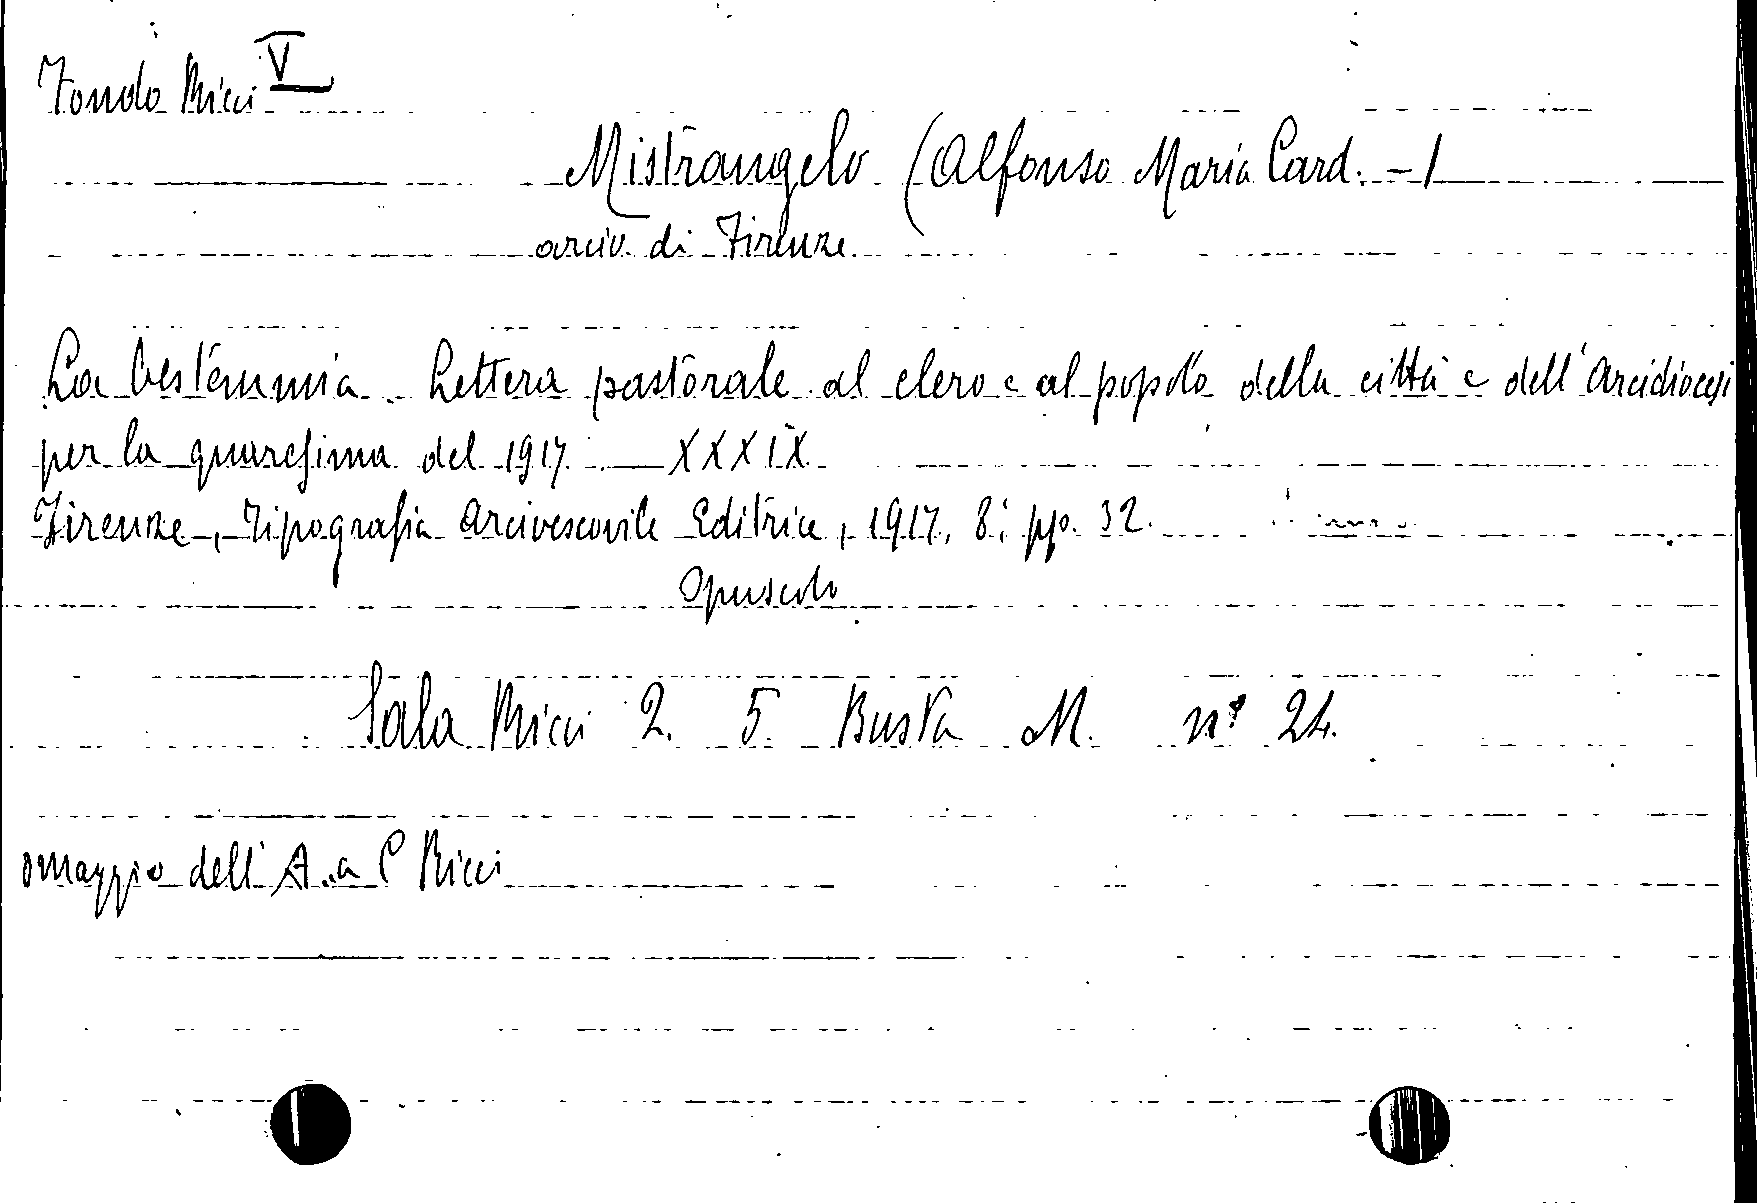 Fondo Ricci V
Mistrangelo (Alfonso Maria Card. - /
arciv. di Firenze
La bestemmia. Lettera pastorale al clero e al popolo della città e dell'Arcidiocesi
per la quaresima del 1917. — XXXIX
Firenze, Tipografia Arcivescovile Editrice, 1917, 8°, pp. 32.
Opuscolo
Sala Ricci 2. 5. Busta M. n° 24.
omaggio dell'A. a C Ricci